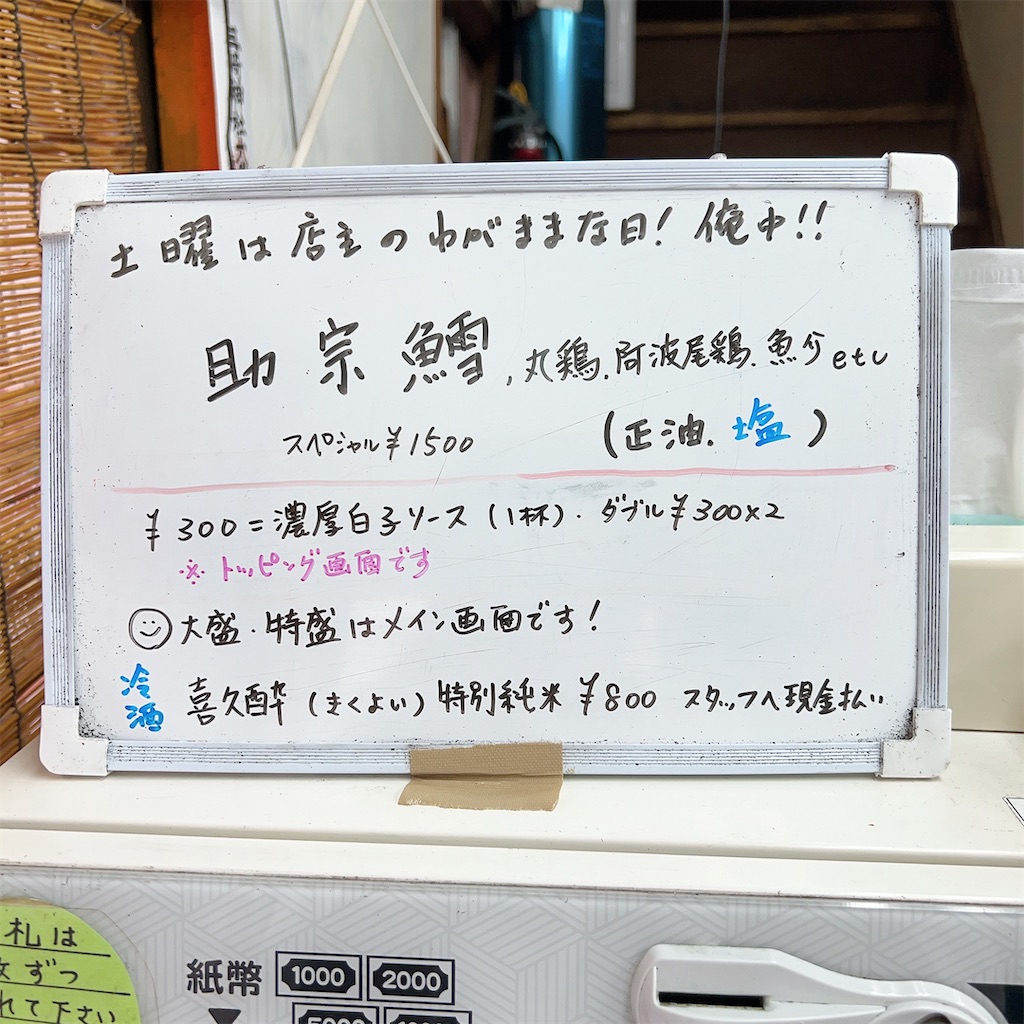 土曜は店主のわがままな日！俺中!!
助宗鱈、丸鶏、阿波尾鶏、魚介etc
スペシャル¥1500 (正油、塩)
¥300=濃厚白子ソース(1杯)・ダブル¥300×2
※トッピング画面です
大盛・特盛はメイン画面です！
冷酒 喜久酔(きくよい)特別純米¥800 スタッフへ現金払い
札は
枚ずつ
れて下さい
紙幣 1000 2000